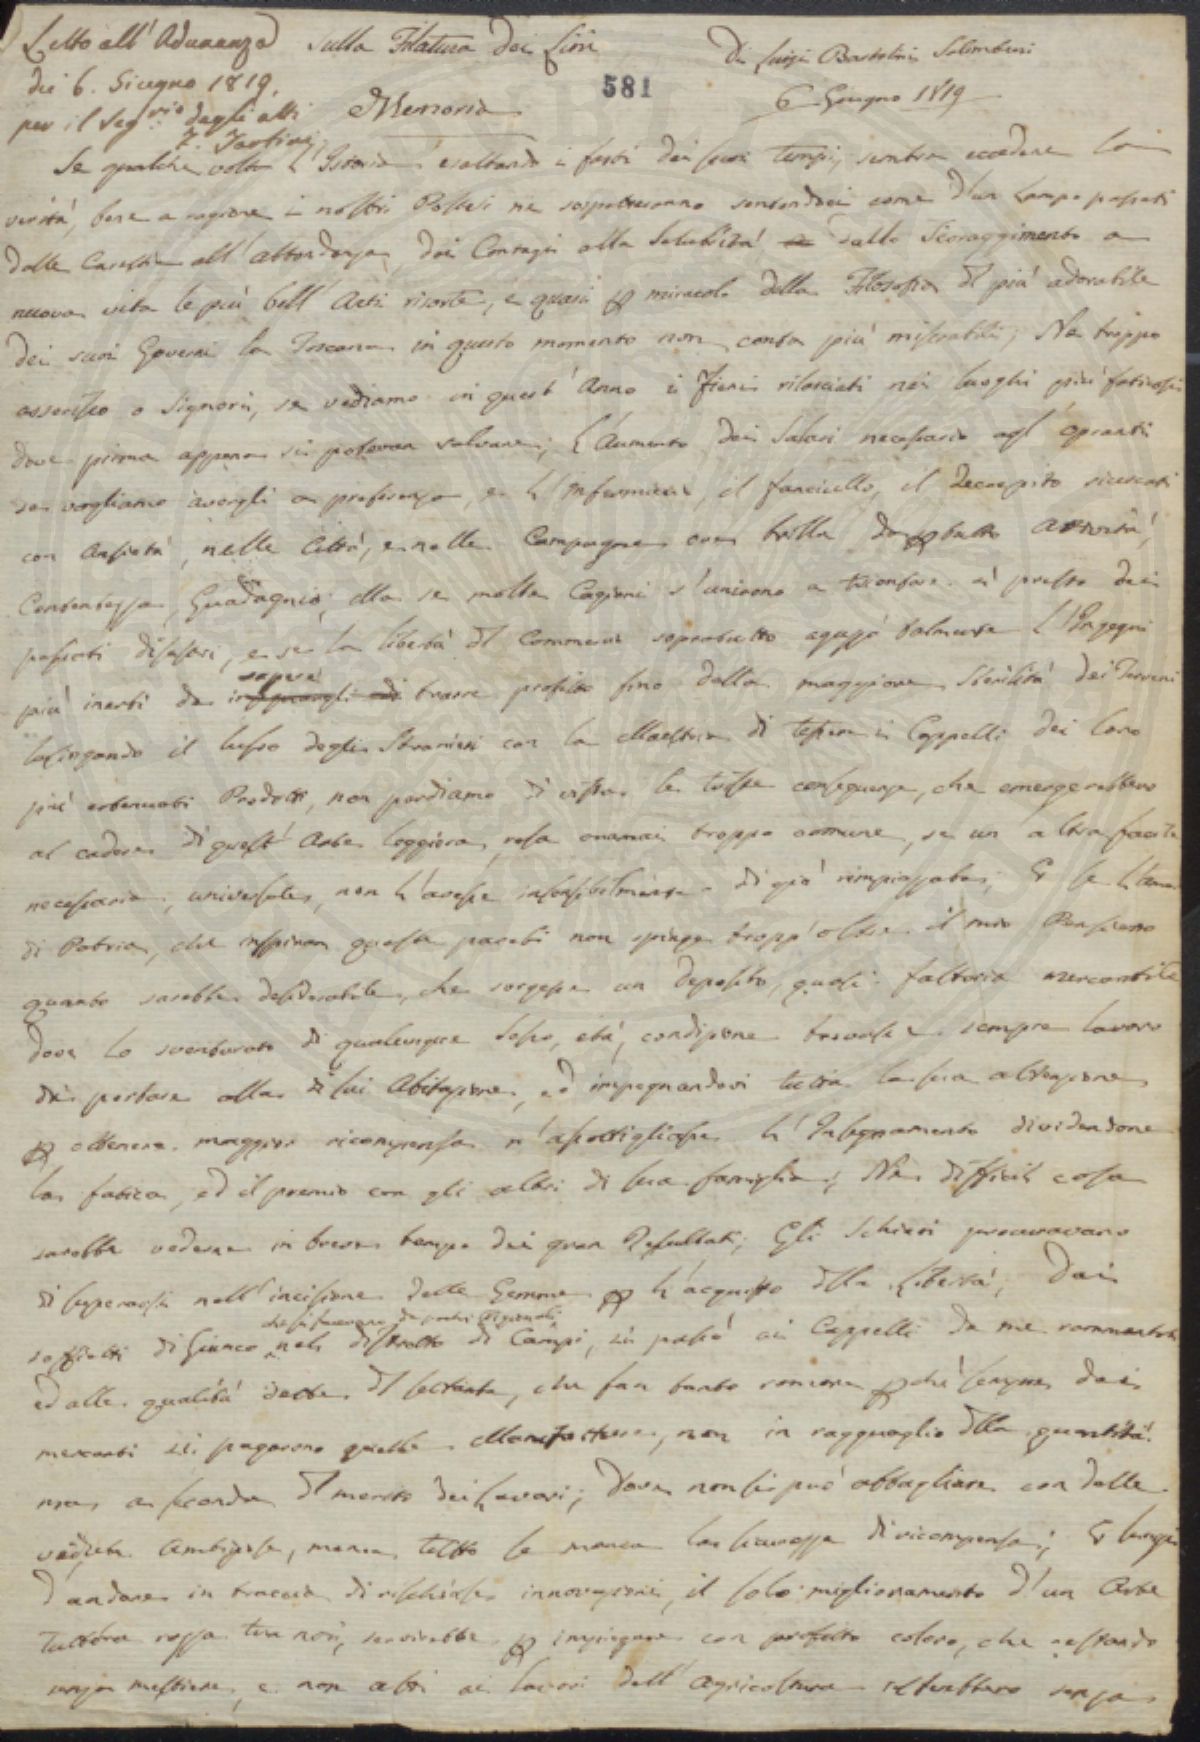 Letto all'Adunanza
dei 6. Giugno 1819.
per il Seg.rio degli atti
Sulla Filatura dei Lini
Memoria
581
Di Luigi Bartolini Salimbeni
6 Giugno 1819
Se qualche volta l'Istoria esaltando i fasti dei suoi tempi, sembra eccedere la
verità, bene a ragione i nostri Posteri ne sospetteranno sentendoci come d'un lampo passati
dalle Carestie all'abbondanza, dai Contagj alla Salubrità dallo Scoraggimento a
nuova vita le più bell'Arti risorte, e quasi p miracolo della Filosofia del più adorabile
dei suoi Governi la Toscana in questo momento non conta più miserabili; Nè troppo
asserisco o Signori, se vediamo in quest'Anno i Fieni rilasciati nei luoghi più faticosi
dove prima appena si potevan salvare; l'Aumento dei Salari necessario agl'opranti
se vogliamo avergli a preferenza, e l'Infermiccio, il fanciullo, il Decrepito ricercati
con ansietà, nelle Città, e nelle Campagne ove brilla da p tutto attività,
Contentezza, Guadagnio; Ma se molte Cagioni s'unirono a trionfare sì presto dei
passati disastri, e se la libertà del Commercio soprattutto aguzzò talmente l'Ingegni
più inerti da sapere trarre profitto fino dalla maggiore Sterilità dei Terreni
lusingando il lusso degli Stranieri con la Maestria di tessere i Cappelli dei loro
più estenuati Prodotti, non perdiamo di vista le triste conseguenze, che emergerebbero
al cadere di quest'Arte leggiera, resa oramai troppo comune, se un altra facile
necessaria, universale, non l'avesse insensibilmente di già rimpiazzata; E se l'amor
di Patria, che inspiran queste pareti non spinge tropp'oltre il mio Pensiero
quanto sarebbe desiderabile, che sorgesse un deposito, quasi fattoria mercantile
dove lo sventurato di qualunque sesso, età, condizione trovasse sempre lavoro
da portare alla di lui Abitazione, ed impegnandovi tutta la sua attenzione
p ottenere maggior ricompensa n'assottigliasse l'Insegnamento dividendone
la fatica, ed il premio con gli altri di sua famiglia; Nè difficil cosa
sarebbe vederne in breve tempo dei gran Resultati; Gli Schiavi procuravano
di superarsi nell'incisione delle Gemme p l'acquisto della Libertà; Dai
soffietti di Giunco nel distretto di Campi, si passò ai Cappelli da me rammentati
ed alle qualità dette del settanta, che fan tanto rumore pchè sempre dai
mercanti si pagarono quelle Manifatture, non in ragguaglio della quantità
ma a seconda del merito dei Lavori; Dove non si può abbagliare con delle
vedute ambiziose, manca tutto se manca la sicurezza di ricompensa; E lungi
d'andare in traccia di rischiose innovazioni, il solo miglioramento d'un Arte
Tuttora rozza tra noi, servirebbe p impiegare con profitto coloro, che restando
senza mestiere, e non atti ai lavori dell'agricoltura resterebbero senza